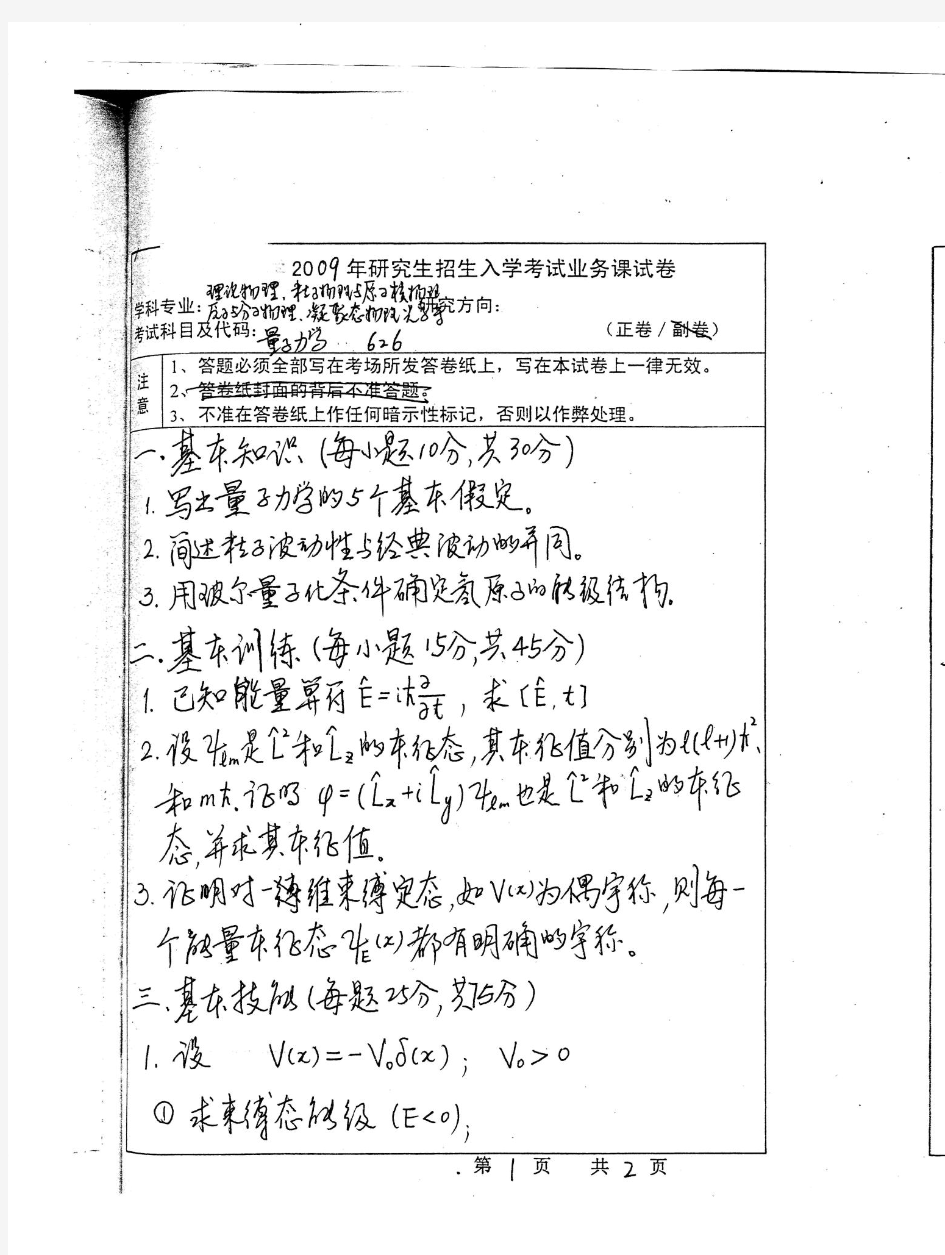 2009年研究生招生入学考试业务课试卷
学科专业:理论物理、粒子物理与原子核物理、研究方向:
原子与分子物理、凝聚态物理、光学
考试科目及代码:量子力学 626 (正卷/副卷)
注意
1、答题必须全部写在考场所发答卷纸上,写在本试卷上一律无效。
2、答卷纸封面的背后不准答题。
3、不准在答卷纸上作任何暗示性标记,否则以作弊处理。
一.基本知识(每小题10分,共30分)
1.写出量子力学的5个基本假定。
2.简述粒子波动性与经典波动的异同。
3.用玻尔量子化条件确定氢原子的能级结构.
二.基本训练(每小题15分,共45分)
1.已知能量算符Ê=iħ∂/∂t,求[Ê,t]
2.设ψₗₘ是L̂²和L̂z的本征态,其本征值分别为ℓ(ℓ+1)ħ²、
和mħ.证明φ=(L̂x+iL̂y)ψₗₘ也是L̂²和L̂z的本征
态,并求其本征值。
3.证明对一维束缚定态,如V(x)为偶宇称,则每一
个能量本征态ψE(x)都有明确的宇称。
三、基本技能(每题25分,共75分)
1.设 V(x)=-V₀δ(x); V₀>0
①求束缚态能级(E<0);
第1页 共2页